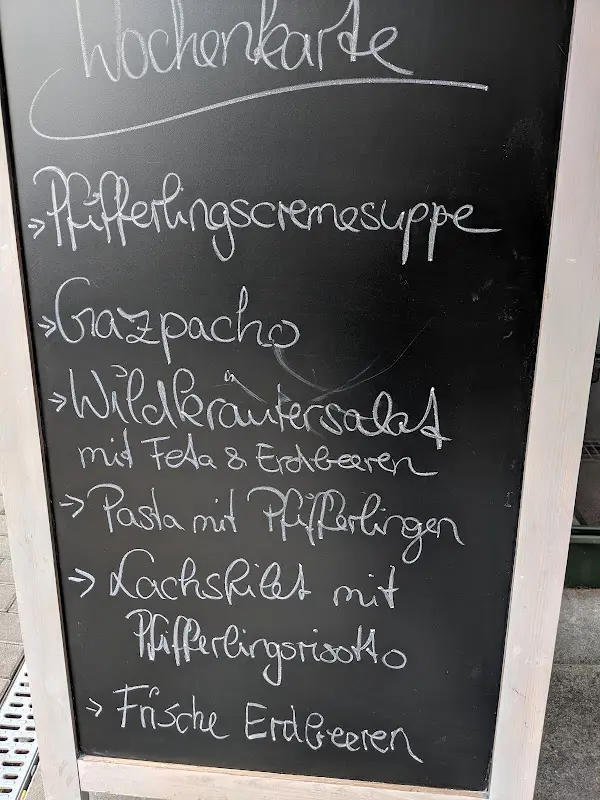 Wochenkarte
→ Pfifferlingscremesuppe
→ Gazpacho
→ Wildkräutersalat
mit Feta & Erdbeeren
→ Pasta mit Pfifferlingen
→ Lachsfilet mit
Pfifferlingsrisotto
→ Frische Erdbeeren